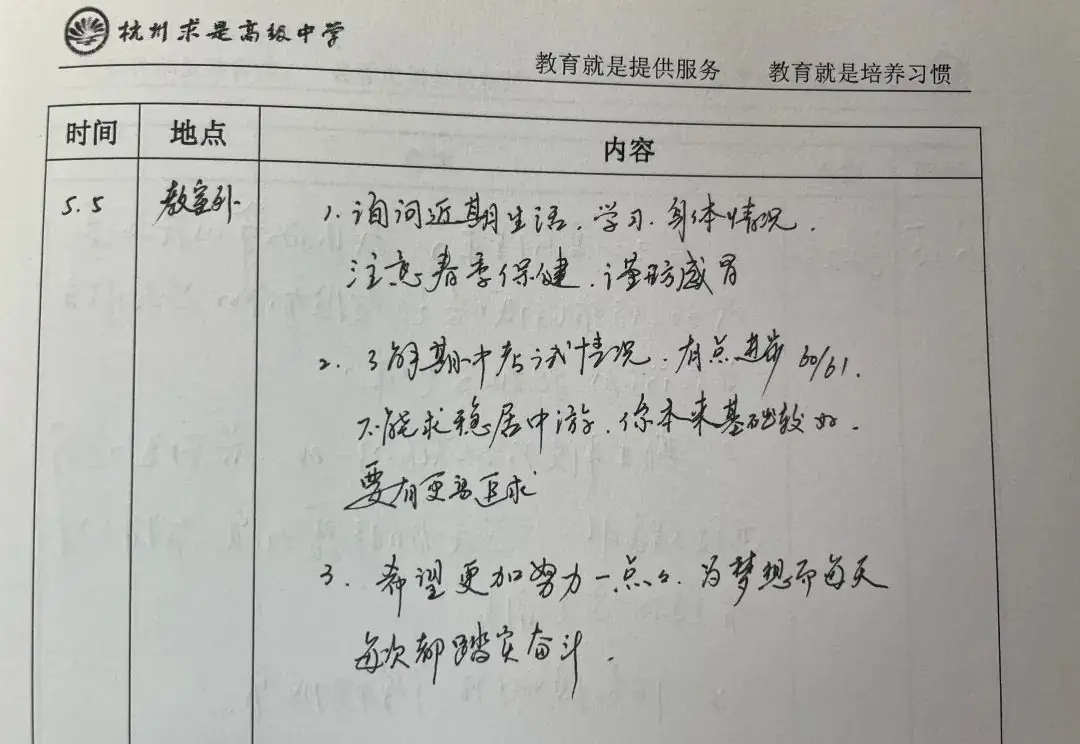 杭州求是高级中学
教育就是提供服务 教育就是培养习惯
时间 地点 内容
5.5 教室外 1. 询问近期生活、学习、身体情况.
注意春季保健、谨防感冒
2. 了解期中考试情况、有点进步 60/61.
不能求稳居中游、你本来基础较好.
要有更高追求
3. 希望更加努力一点点、为梦想而每天
每次都踏实奋斗.